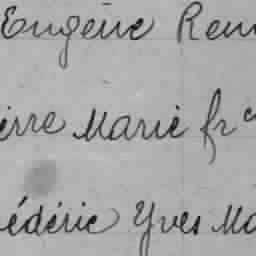 Eugène Ren
ierre Marie frc
édéric Yves Ma